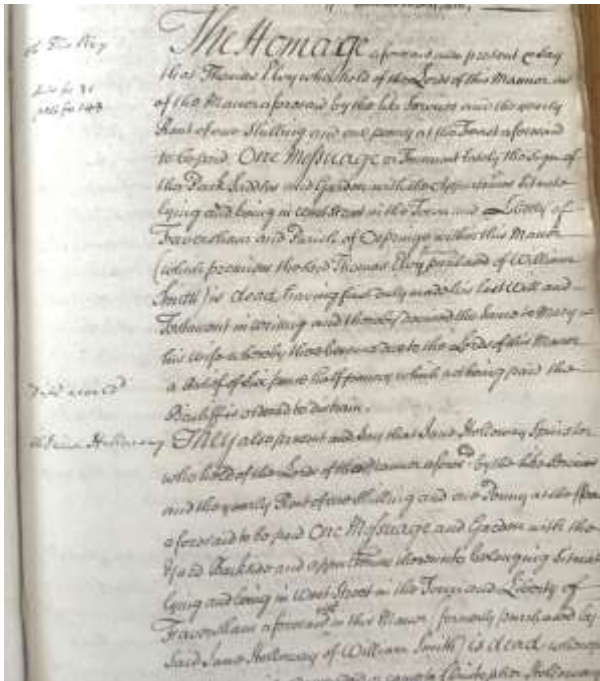 The Homage aforesaid also present & say
that Thomas Elvy who held of the Lords of this Mannor as
of the Manor aforesaid by the like Services and the yearly
Rent of one Shilling and one penny at the Feast aforesaid
to be paid One Messuage or Tenement lately the Sign of
the Pack Saddle and Garden with the Appurtenances Situate
lying and being in West Street in the Town and Liberty of
Faversham and Parish of Ospringe within this Manor
(which premises the said Thomas Elvy purchased of William
Smith) is dead having first duly made his last Will and
Testament in writing and thereby devised the same to Mary
his wife whereby there became due to the Lords of this Manor
a Relief of Six pence half penny which not being paid the
Bailiff is ordered to distrain.
Jane Holloway
They also present and say that Jane Holloway Spinster
who held of the Lords of this Mannor afores.d by the like Services
and the yearly Rent of one Shilling and one Penny at the
aforesaid to be paid One Messuage and Garden with the
Yard Backside and appurtenances thereunto belonging Situate
lying and being in West Street in the Town and Liberty of
Faversham aforesaid in this Manor (formerly purchased by
Said Jane Holloway of William Smith) is dead whereupon
Christopher Holloway